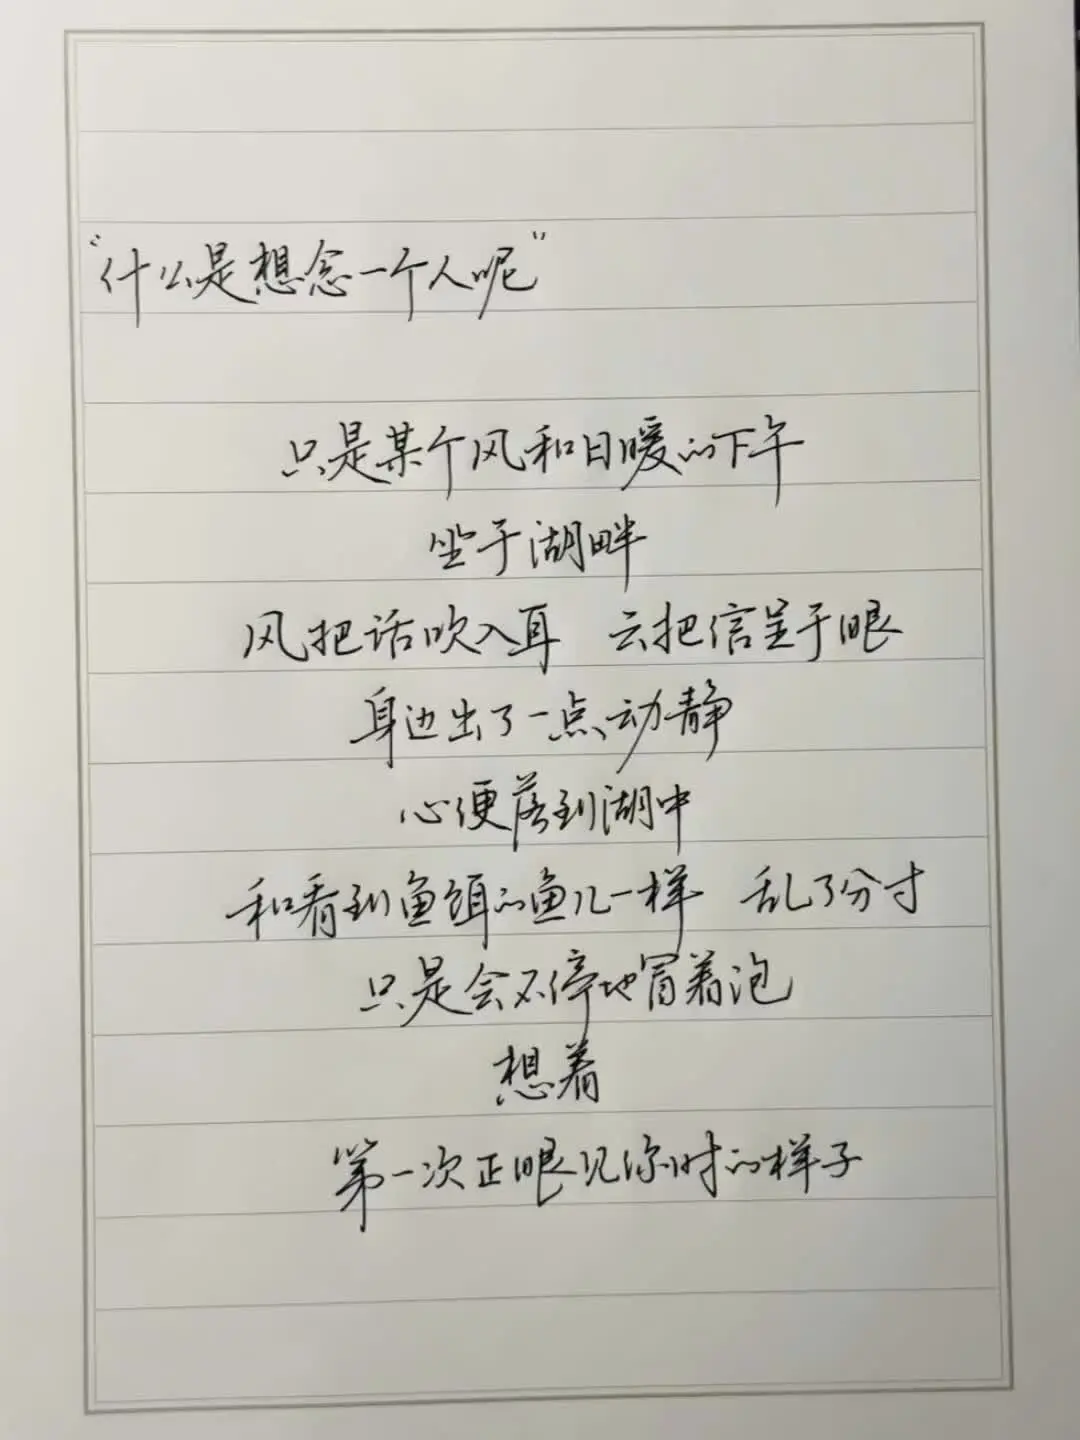 “什么是想念一个人呢”
只是某个风和日暖的下午
坐于湖畔
风把话吹入耳 云把信呈于眼
身边出了一点动静
心便落到湖中
和看到鱼饵的鱼儿一样 乱了分寸
只是会不停地冒着泡
想着
第一次正眼见你时的样子